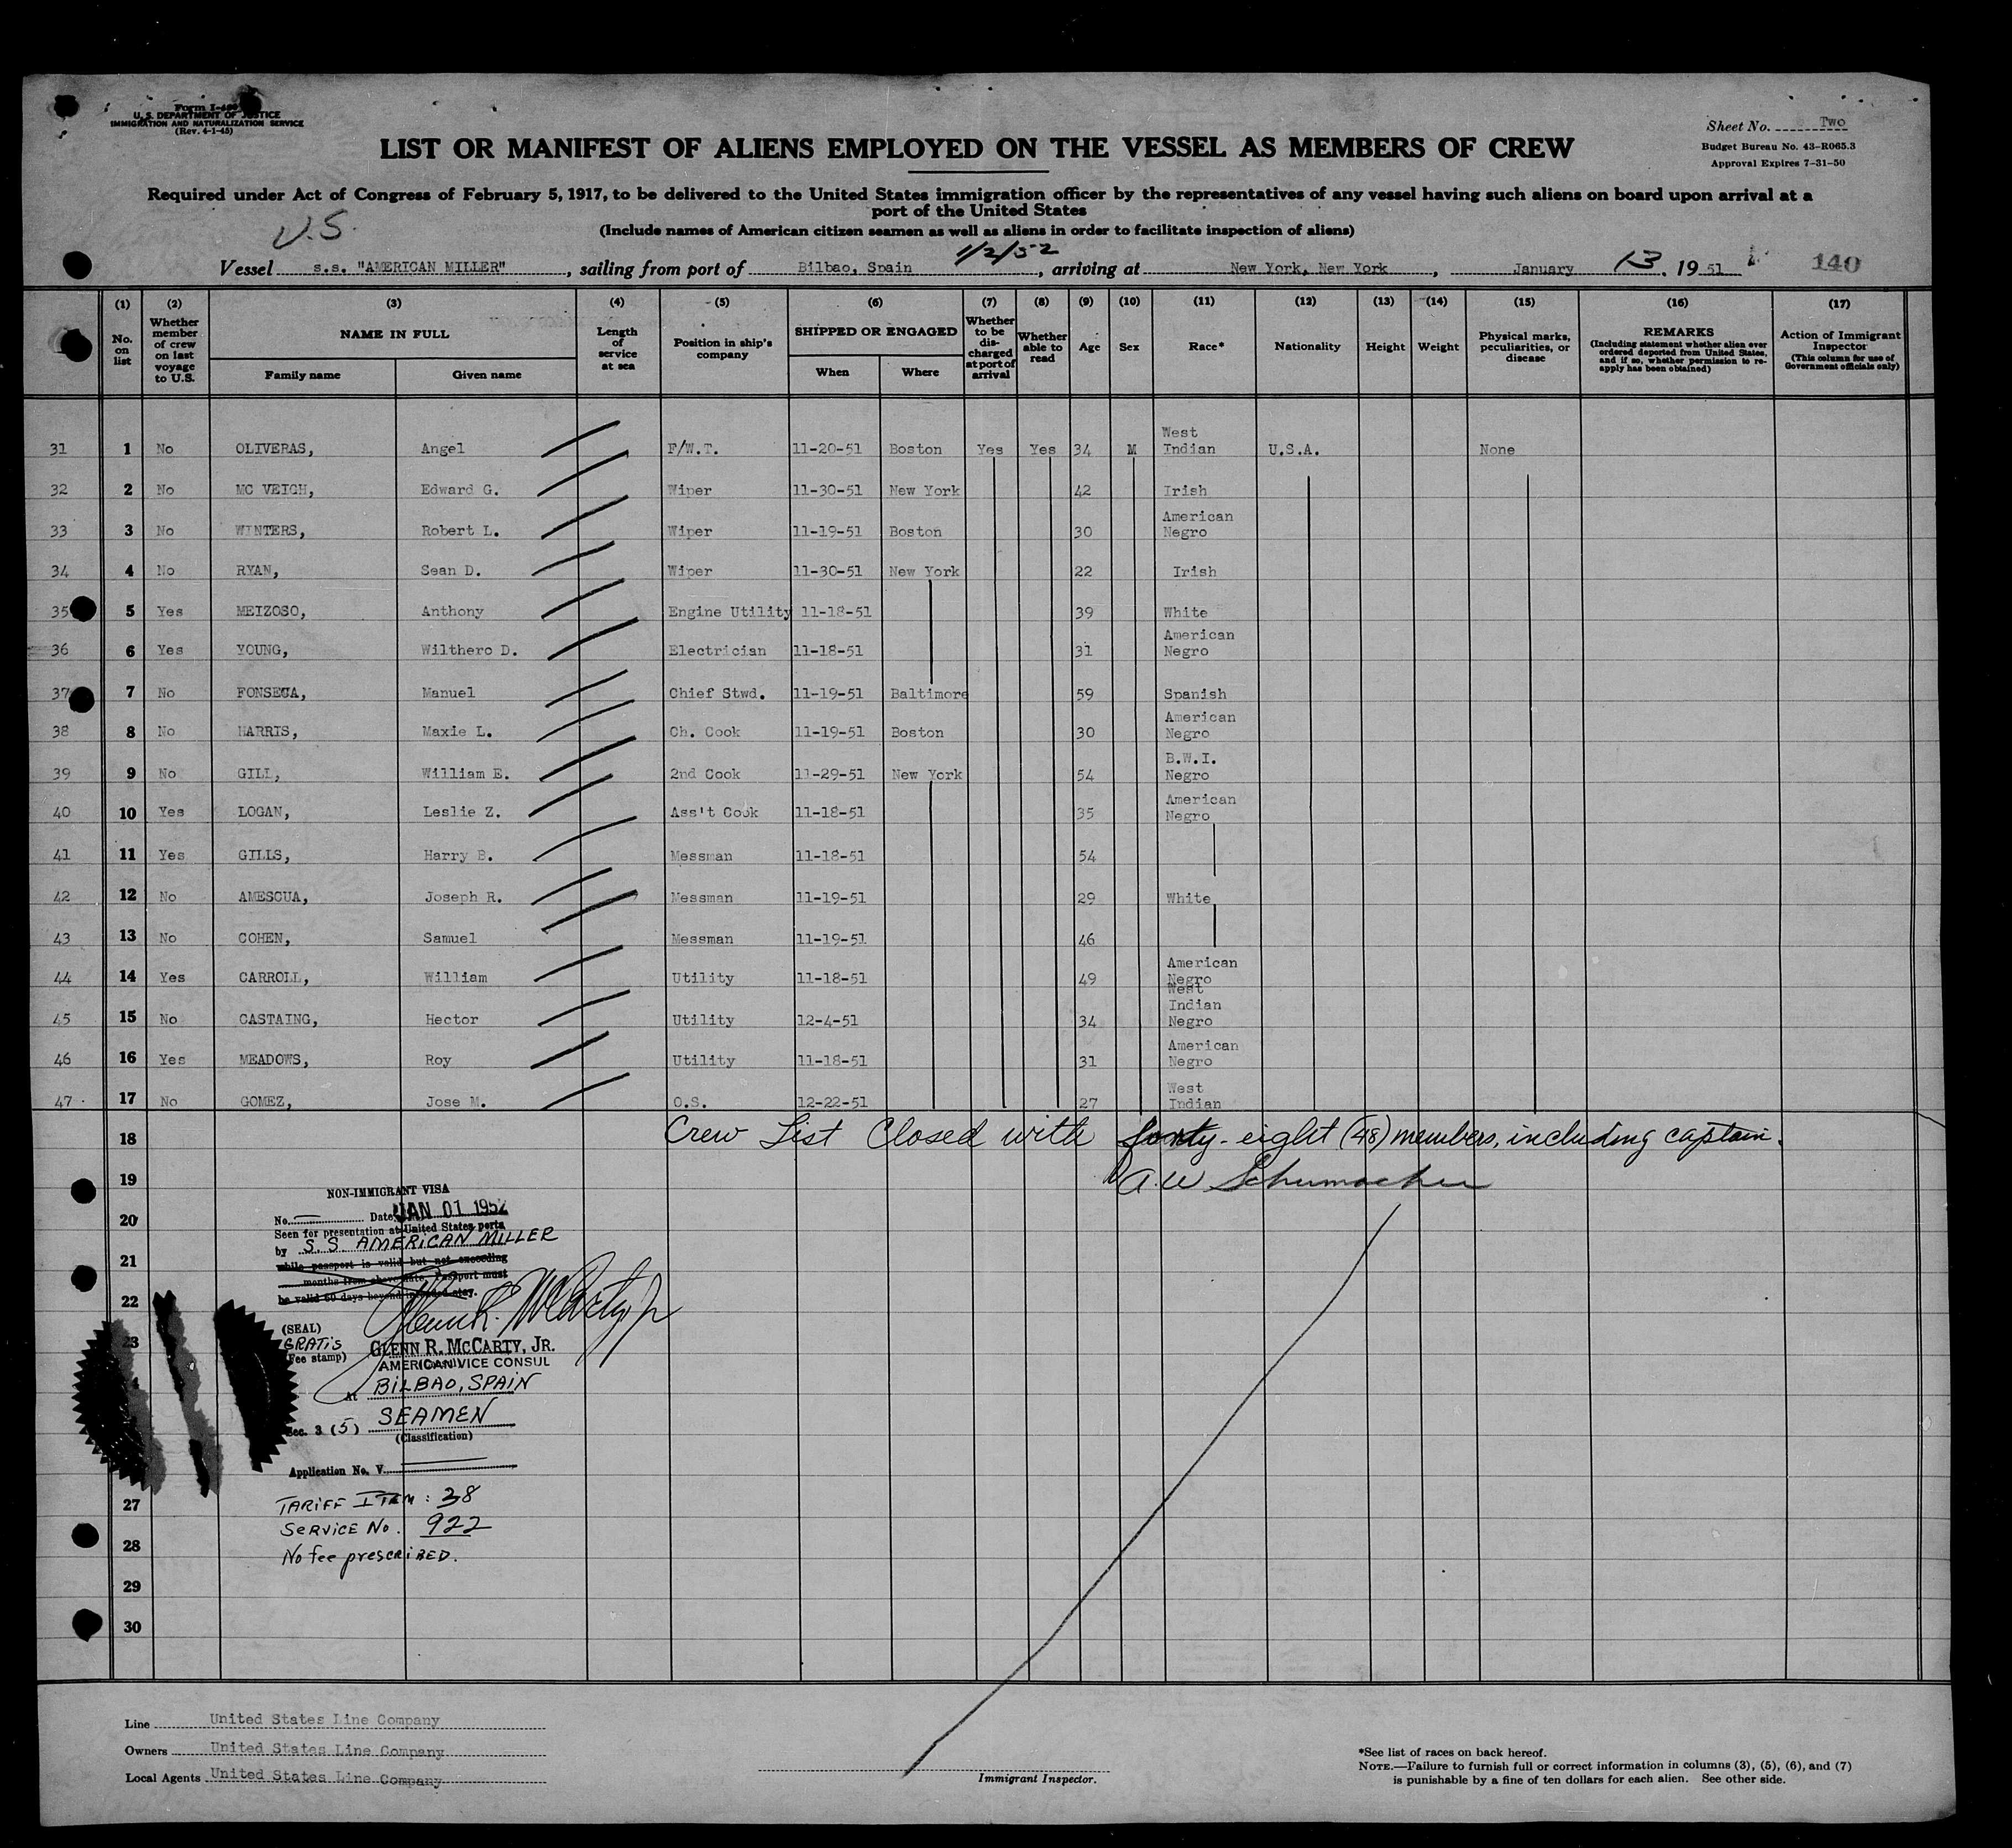 Form I-489
U. S. DEPARTMENT OF JUSTICE
IMMIGRATION AND NATURALIZATION SERVICE
(Rev. 4-1-45)
Sheet No. Two
Budget Bureau No. 43-R065.3
Approval Expires 7-31-50
LIST OR MANIFEST OF ALIENS EMPLOYED ON THE VESSEL AS MEMBERS OF CREW
Required under Act of Congress of February 5, 1917, to be delivered to the United States immigration officer by the representatives of any vessel having such aliens on board upon arrival at a
port of the United States
U.S.
(Include names of American citizen seamen as well as aliens in order to facilitate inspection of aliens)
1/2/52
Vessel s.s. "AMERICAN MILLER", sailing from port of Bilbao, Spain, arriving at New York, New York, January 13, 1951 140
(1) No. on list
(2) Whether member of crew on last voyage to U.S.
(3) NAME IN FULL Family name Given name
(4) Length of service at sea
(5) Position in ship's company
(6) SHIPPED OR ENGAGED When Where
(7) Whether to be discharged at port of arrival
(8) Whether able to read
(9) Age
(10) Sex
(11) Race*
(12) Nationality
(13) Height
(14) Weight
(15) Physical marks, peculiarities, or disease
(16) REMARKS (Including statement whether alien ever ordered deported from United States, and if so, whether permission to re-apply has been obtained)
(17) Action of Immigrant Inspector (This column for use of Government officials only)
31 1 No OLIVERAS, Angel F/W.T. 11-20-51 Boston Yes Yes 34 M West Indian U.S.A. None
32 2 No MC VEIGH, Edward G. Wiper 11-30-51 New York 42 Irish
33 3 No WINTERS, Robert L. Wiper 11-19-51 Boston 30 American Negro
34 4 No RYAN, Sean D. Wiper 11-30-51 New York 22 Irish
35 5 Yes MEIZOSO, Anthony Engine Utility 11-18-51 39 White
36 6 Yes YOUNG, Wilthero D. Electrician 11-18-51 31 American Negro
37 7 No FONSECA, Manuel Chief Stwd. 11-19-51 Baltimore 59 Spanish
38 8 No HARRIS, Maxie L. Ch. Cook 11-19-51 Boston 30 American Negro
39 9 No GILL, William E. 2nd Cook 11-29-51 New York 54 B.W.I. Negro
40 10 Yes LOGAN, Leslie Z. Ass't Cook 11-18-51 35 American Negro
41 11 Yes GILLS, Harry B. Messman 11-18-51 54
42 12 No AMESCUA, Joseph R. Messman 11-19-51 29 White
43 13 No COHEN, Samuel Messman 11-19-51 46
44 14 Yes CARROLL, William Utility 11-18-51 49 American Negro
45 15 No CASTAING, Hector Utility 12-4-51 34 West Indian Negro
46 16 Yes MEADOWS, Roy Utility 11-18-51 31 American Negro
47 17 No GOMEZ, Jose M. O.S. 12-22-51 27 West Indian
18 Crew List Closed with forty-eight (48) members, including captain.
19 A.W Schumacher
NON-IMMIGRANT VISA
20 No. Date JAN 01 1952
Seen for presentation at United States ports
by S.S. AMERICAN MILLER
21 while passport is valid but not exceeding
months from above date. Passport must
22 be valid 60 days beyond intended stay.
Glenn R. McCarty Jr
(SEAL)
23 GRATIS
(Fee stamp)
GLENN R. MCCARTY, JR.
AMERICAN VICE CONSUL
At BILBAO, SPAIN
Sec. 3 (5) SEAMEN
(Classification)
Application No. V
27 TARIFF ITEM: 38
SERVICE No. 922
28 No fee prescriBED.
29
30
Line United States Line Company
Owners United States Line Company
Local Agents United States Line Company
Immigrant Inspector.
*See list of races on back hereof.
NOTE.—Failure to furnish full or correct information in columns (3), (5), (6), and (7)
is punishable by a fine of ten dollars for each alien. See other side.